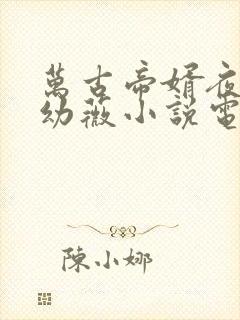 萬古帝婿夜
幼薇小說電
陳小娜